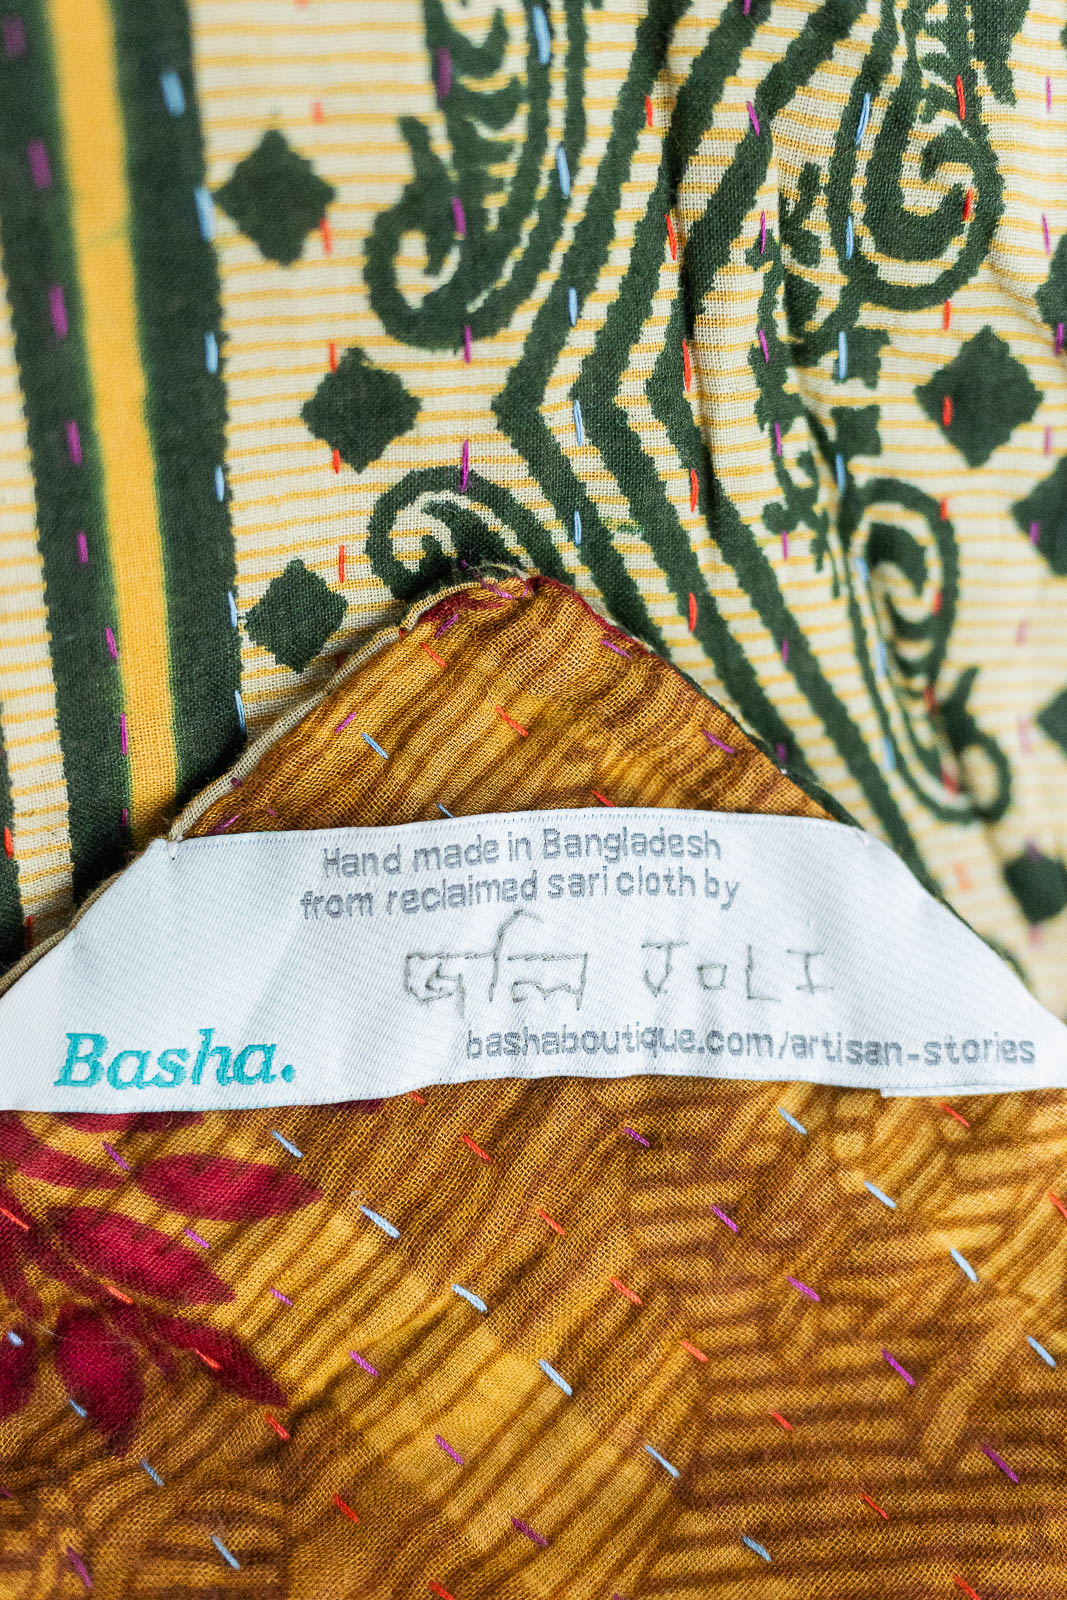 Hand made in Bangladesh
from reclaimed sari cloth by
জলি JOLI
Basha.
bashaboutique.com/artisan-stories